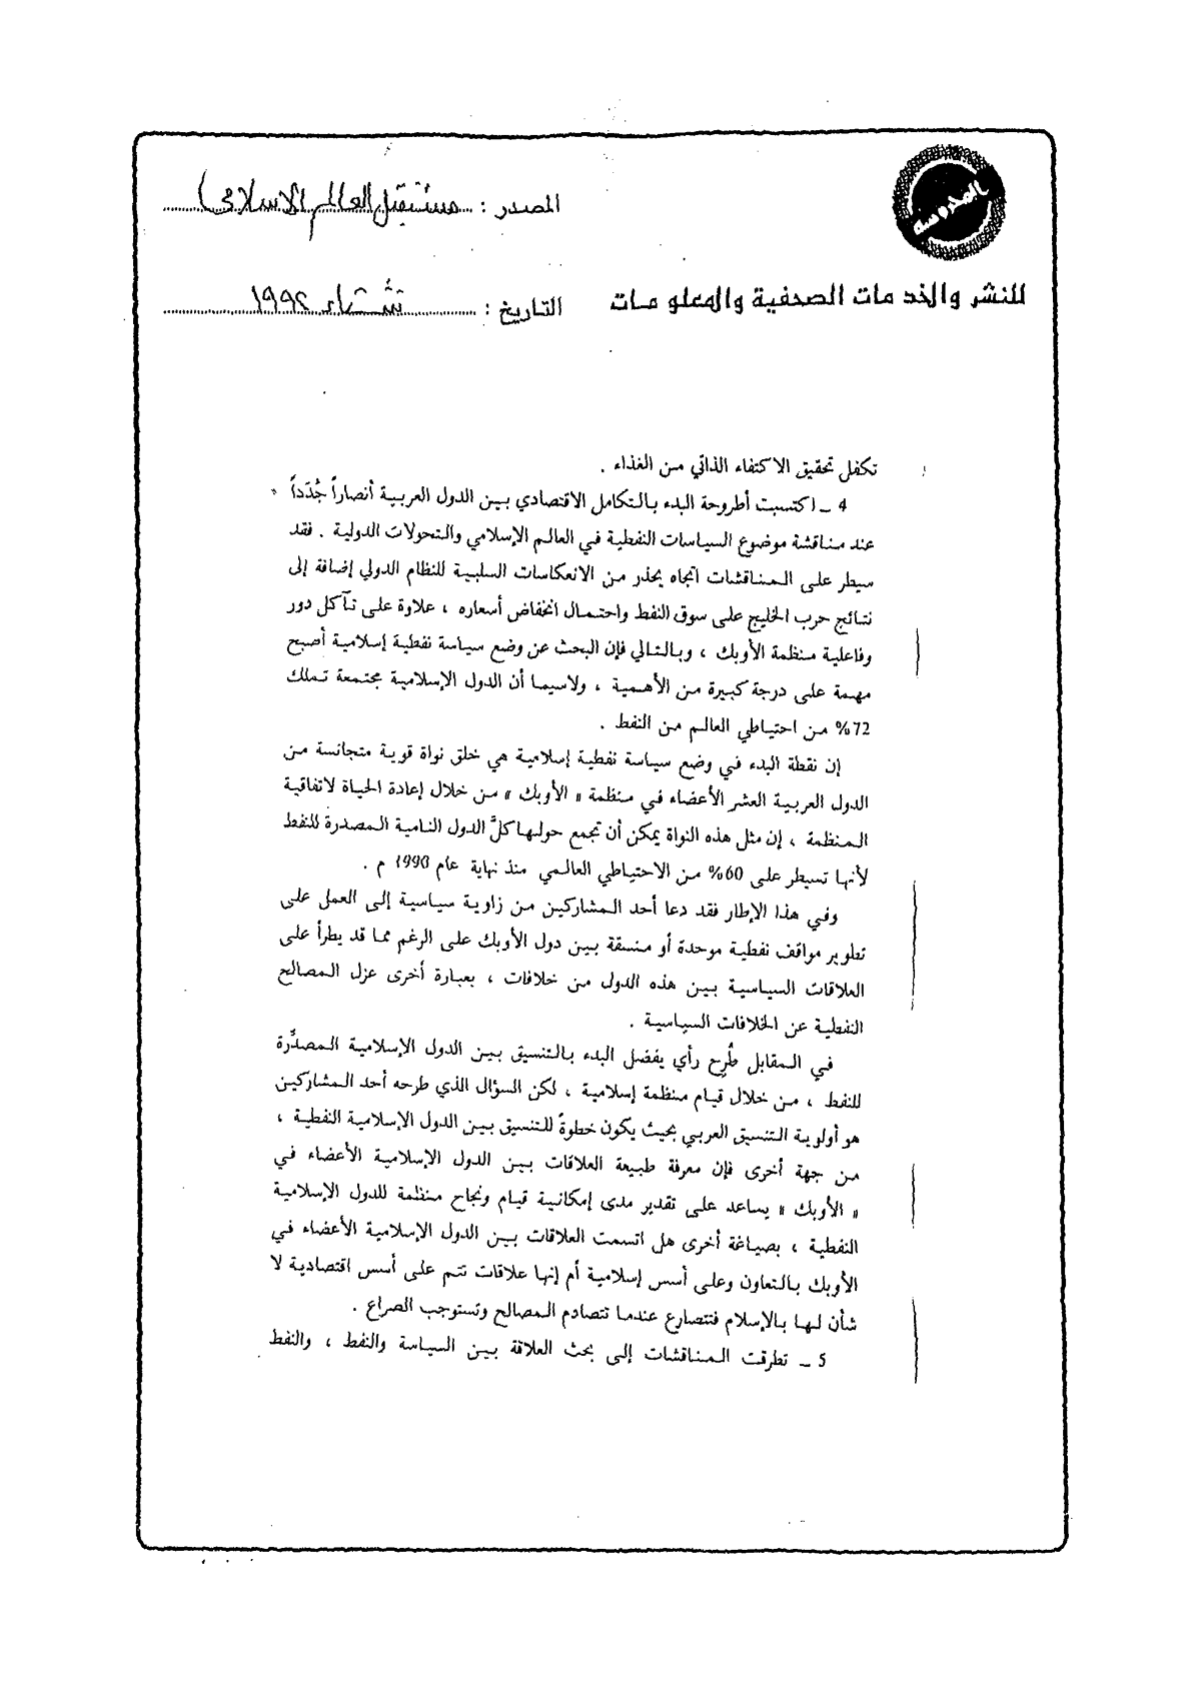 المصدر : مستقبل العالم الاسلامى
للنشر والخدمات الصحفية والمعلومات
التاريخ : شتاء ١٩٩٢
تكفل تحقيق الاكتفاء الذاتي من الغذاء .
4 ـ اكتسبت أطروحة البدء بالتكامل الاقتصادي بين الدول العربية أنصاراً جُدَداً
عند مناقشة موضوع السياسات النفطية في العالم الإسلامي والتحولات الدولية . فقد
سيطر على المناقشات اتجاه يحذر من الانعكاسات السلبية للنظام الدولي إضافة إلى
نتائج حرب الخليج على سوق النفط واحتمال انخفاض أسعاره ، علاوة على تآكل دور
وفاعلية منظمة الأوبك ، وبالتالي فإن البحث عن وضع سياسة نفطية إسلامية أصبح
مهمة على درجة كبيرة من الأهمية ، ولاسيما أن الدول الإسلامية مجتمعة تملك
72% من احتياطي العالم من النفط .
إن نقطة البدء في وضع سياسة نفطية إسلامية هي خلق نواة قوية متجانسة من
الدول العربية العشر الأعضاء في منظمة « الأوبك » من خلال إعادة الحياة لاتفاقية
المنظمة ، إن مثل هذه النواة يمكن أن تجمع حولها كلَّ الدول النامية المصدرة للنفط
لأنها تسيطر على 60% من الاحتياطي العالمي منذ نهاية عام 1990 م .
وفي هذا الإطار فقد دعا أحد المشاركين من زاوية سياسية إلى العمل على
تطوير مواقف نفطية موحدة أو منسقة بين دول الأوبك على الرغم مما قد يطرأ على
العلاقات السياسية بين هذه الدول من خلافات ، بعبارة أخرى عزل المصالح
النفطية عن الخلافات السياسية .
في المقابل طُرح رأي يفضل البدء بالتنسيق بين الدول الإسلامية المصدِّرة
للنفط ، من خلال قيام منظمة إسلامية ، لكن السؤال الذي طرحه أحد المشاركين
هو أولوية التنسيق العربي بحيث يكون خطوةً للتنسيق بين الدول الإسلامية النفطية ،
من جهة أخرى فإن معرفة طبيعة العلاقات بين الدول الإسلامية الأعضاء في
« الأوبك » يساعد على تقدير مدى إمكانية قيام ونجاح منظمة للدول الإسلامية
النفطية ، بصياغة أخرى هل اتسمت العلاقات بين الدول الإسلامية الأعضاء في
الأوبك بالتعاون وعلى أسس إسلامية أم إنها علاقات تتم على أسس اقتصادية لا
شأن لها بالإسلام فتتصارع عندما تتصادم المصالح وتستوجب الصراع .
5 ـ تطرقت المناقشات إلى بحث العلاقة بين السياسة والنفط ، والنفط